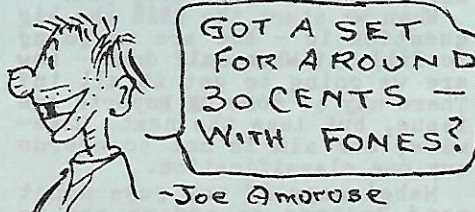 GOT A SET
FOR AROUND
30 CENTS —
WITH FONES?
-Joe Amorose